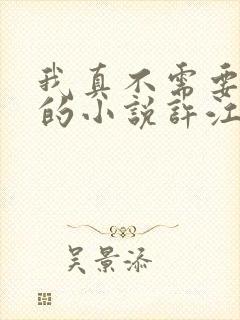 我真不需要
的小說許江
吴景添